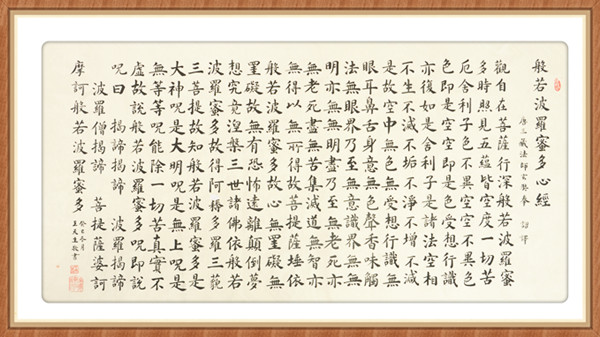 般若波羅蜜多心經
唐三藏法師玄奘奉 詔譯
觀自在菩薩行深般若波羅蜜
多時照見五蘊皆空度一切苦
厄舍利子色不異空空不異色
色即是空空即是色受想行識
亦復如是舍利子是諸法空相
不生不滅不垢不淨不增不減
是故空中無色無受想行識無
眼耳鼻舌身意無色聲香味觸
法無眼界乃至無意識界無無
明亦無無明盡乃至無老死亦
無老死盡無苦集滅道無智亦
無得以無所得故菩提薩埵依
般若波羅蜜多故心無罣礙無
罣礙故無有恐怖遠離顛倒夢
想究竟涅槃三世諸佛依般若
波羅蜜多故得阿耨多羅三藐
三菩提故知般若波羅蜜多是
大神呪是大明呪是無上呪是
無等等呪能除一切苦真實不
虛故說般若波羅蜜多呪即說
呪曰 揭諦揭諦 波羅揭諦
波羅僧揭諦 菩提薩婆訶
摩訶般若波羅蜜多
敬書